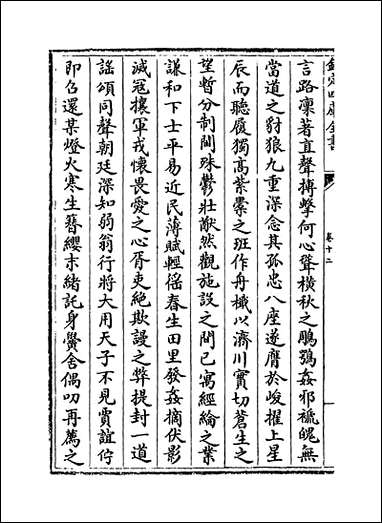 欽定四庫全書
卷十二
言路凜著直聲搏擊何心聳横秋之鵰鶚姦邪褫魄無
當道之豺狼九重深念其孤忠八座遂膺於峻擢上星
辰而聽履獨高紫橐之班作舟檝以濟川實切蒼生之
望暫分制閫殊鬱壯猷然觀施設之間已寓經綸之業
謙和下士平易近民薄賦輕徭春生田里發姦摘伏影
滅冦攘軍戎懷畏愛之心胥吏絶欺謾之弊提封一道
謡頌同聲朝廷深知弱翁行將大用天子不見賈誼佇
即召還某燈火寒生簪纓末緒託身黌舍偶叨再薦之